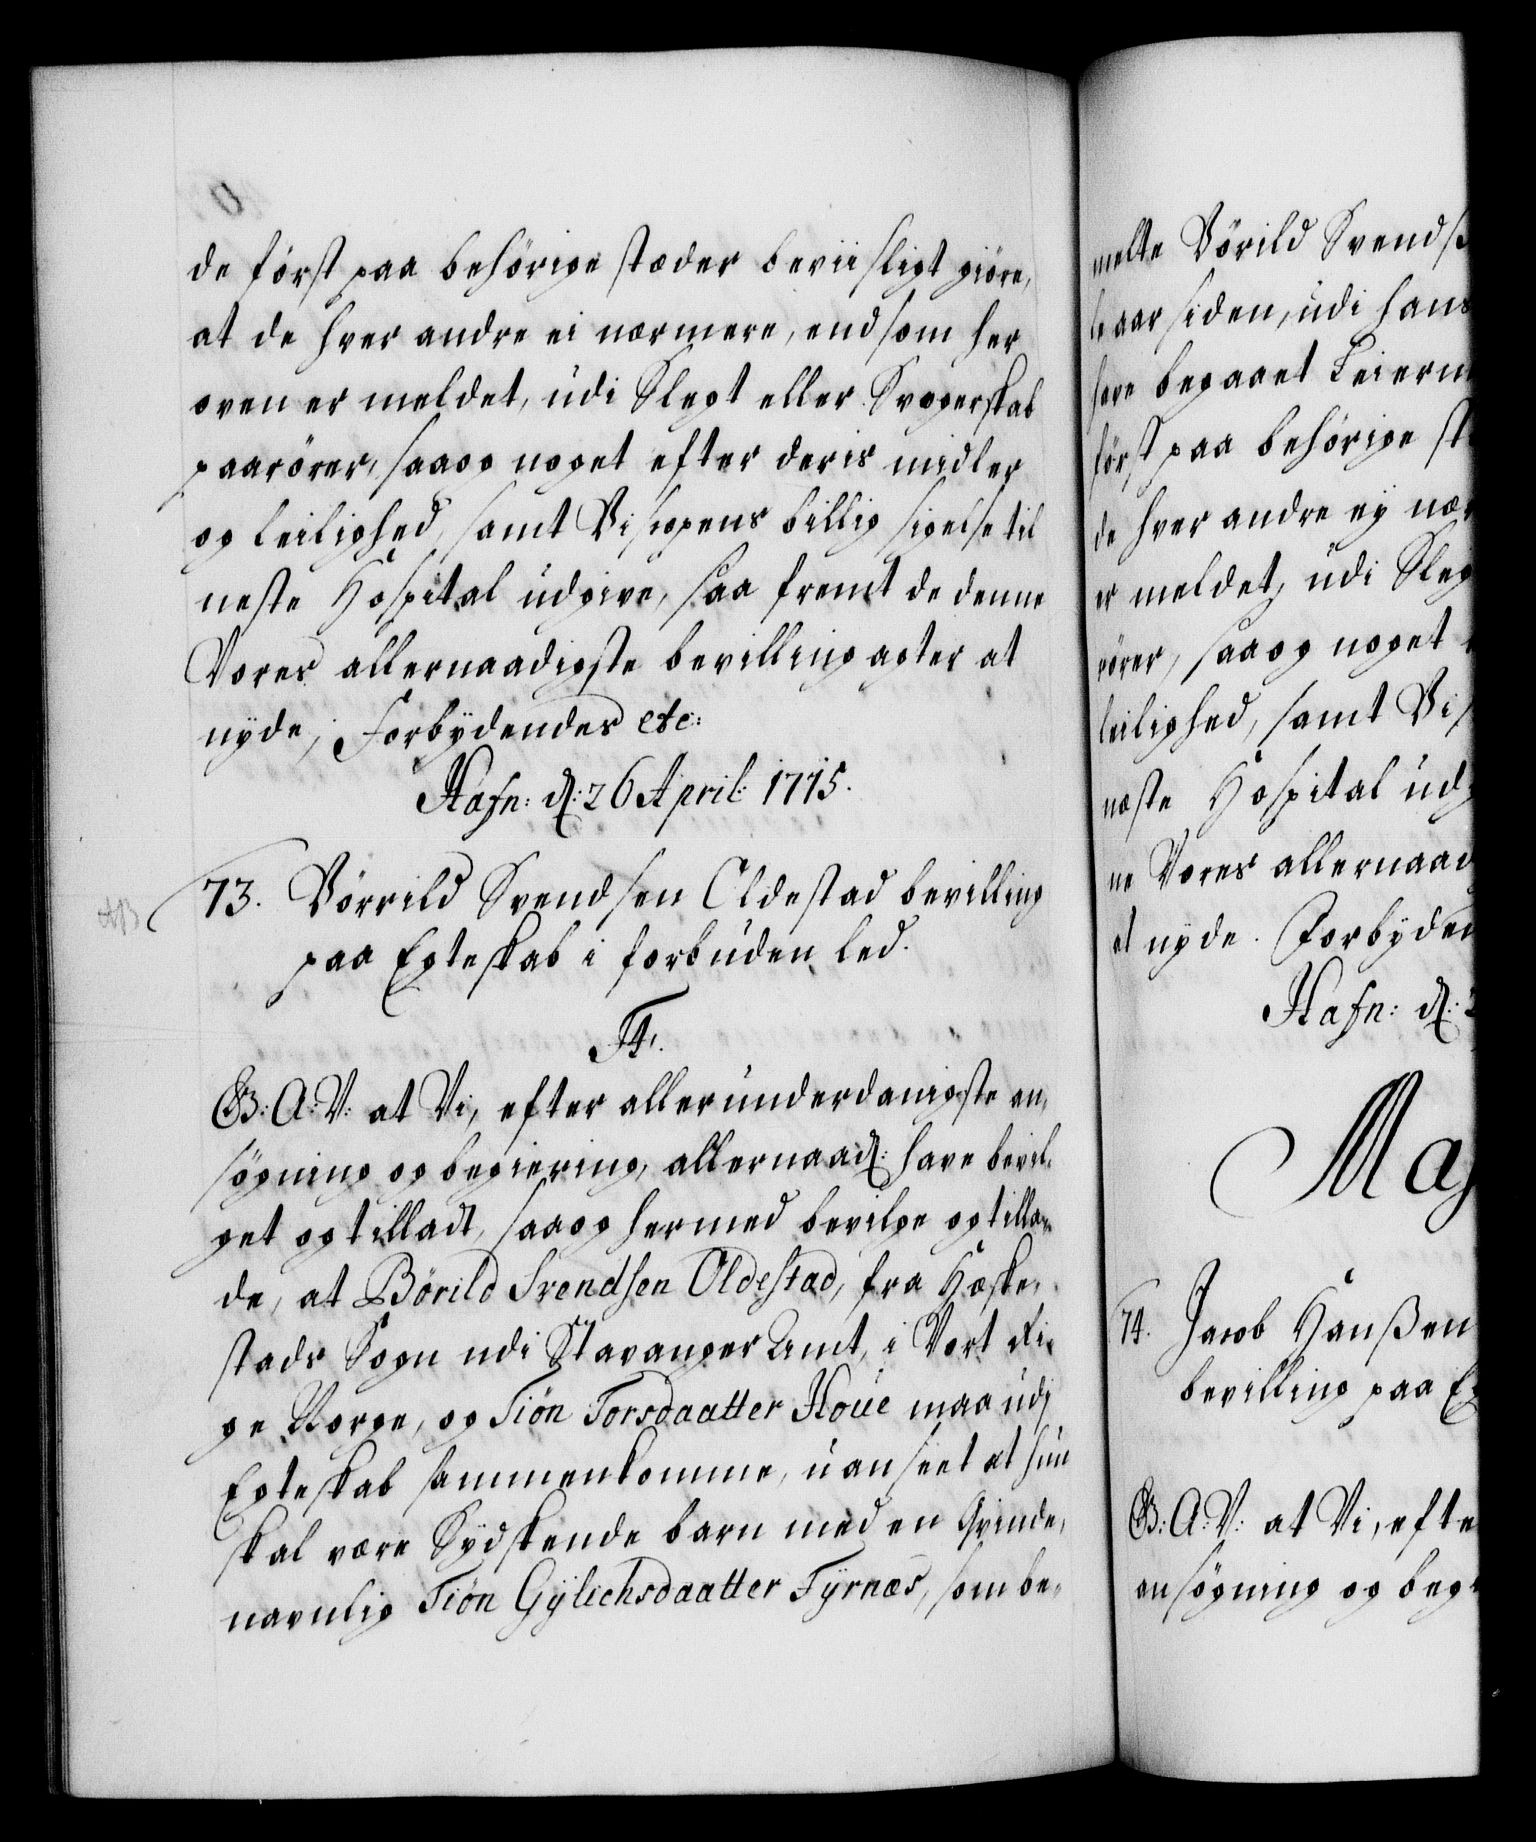 de först paa behörige stæder beviisligt giöre,
at de hver andre ei nærmere, end som her
oven er meldet, udi Slegt eller Svogerskab
paarörer, saa og noget efter deris midler
og leilighed, samt Biscopens billig sigelse til
neste Hospital udgive, saa fremt de denne
Vores allernaadigste bevilling agter at
nyde, Forbydendes etc:
Hafn: d: 26 April: 1715.
73. Börrild Svendsen Oldestad bevilling
paa Egteskab i forbuden led.
F4.
G: A: V: at Vi, efter allerunderdanigste an,
søgning og begiering, allernaad: have bevil,
get og tilladt, saa og hermed bevilge og tilla,
de, at Börild Svendsen Oldestad, fra Hæske,
stads Sogn udi Stavanger Amt, i Vort Ri,
ge Norge, og Siön Torsdaatter Houe maa udj
Egteskab sammenkomme, uanseet at hun
skal være Sydskende barn med en Qvinde,
navnlig Siön Gÿlichsdaatter Tÿrnæs, som be,
melte Börild Svends
aar siden, udi hans
have begaaet Leierm
först paa behörige st
de hver andre ey nær
er meldet, udi Sleg
rörer, saa og noget
leilighed, samt Bis
næste Hospital udg
ne Vores allernaad
at nyde. Forbyden
Hafn: d: 2
Maj
74. Jacob Hanßen
bevilling paa Eg
G: A: V: at Vi, efte
ansøgning og begi